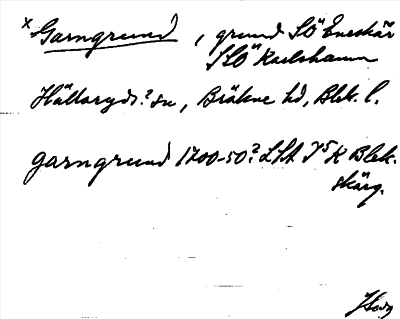 x Garngrund, grund SÖ Eneskär
SSÖ Karlshamn
Hällaryds? sn, Bräkne hd, Blek. l.
garngrund 1700-50? LSA K Blek.
skärg.